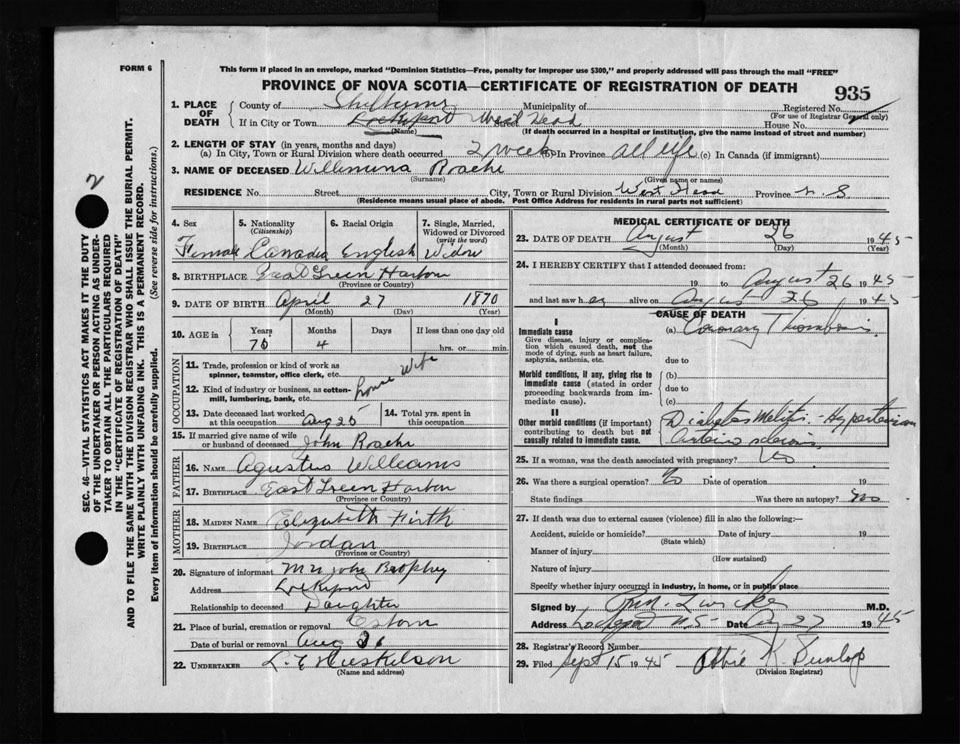 FORM 6
This form if placed in an envelope, marked "Dominion Statistics—Free, penalty for improper use $300," and properly addressed will pass through the mail "FREE"
PROVINCE OF NOVA SCOTIA—CERTIFICATE OF REGISTRATION OF DEATH 935
1. PLACE OF DEATH
County of Shelburne Municipality of Registered No.
(For use of Registrar General only)
If in City or Town Lockeport Street West Head House No.
(Name) (If death occurred in a hospital or institution, give the name instead of street and number)
2. LENGTH OF STAY (in years, months and days)
(a) In City, Town or Rural Division where death occurred 2 week (b) In Province all life (c) In Canada (if immigrant)
3. NAME OF DECEASED Willimina Roache
(Surname) (Given name or names)
RESIDENCE No. Street City, Town or Rural Division West Head Province N.S
(Residence means usual place of abode. Post Office Address for residents in rural parts not sufficient)
4. Sex 5. Nationality 6. Racial Origin 7. Single, Married,
(Citizenship) Widowed or Divorced
(write the word)
Female Canadia English Widow
8. BIRTHPLACE East Green Harbour
(Province or Country)
9. DATE OF BIRTH April 27 1870
(Month) (Day) (Year)
10. AGE in Years Months Days If less than one day old
75 4 hrs. or min.
OCCUPATION
11. Trade, profession or kind of work as
spinner, teamster, office clerk, etc. house Wife
12. Kind of industry or business, as cotton-
mill, lumbering, bank, etc.
13. Date deceased last worked 14. Total yrs. spent in
at this occupation Aug 25 this occupation
15. If married give name of wife
or husband of deceased John Roache
FATHER
16. NAME Agustus Williams
17. BIRTHPLACE East Green Harbour
(Province or Country)
MOTHER
18. MAIDEN NAME Elizabeth Firth
19. BIRTHPLACE Jordan
(Province or Country)
20. Signature of informant Mrs John Brophy
Address Lockeport
Relationship to deceased Daughter
21. Place of burial, cremation or removal
Date of burial or removal Aug
22. UNDERTAKER L. E. Huskilson
(Name and address)
MEDICAL CERTIFICATE OF DEATH
23. DATE OF DEATH August 26 1945
(Month) (Day) (Year)
24. I HEREBY CERTIFY that I attended deceased from:
19 to August 26 1945
and last saw her alive on August 26 1945
CAUSE OF DEATH
I
Immediate cause (a) Coronary Thrombosis
Give disease, injury or complica-
tion which caused death, not the
mode of dying, such as heart failure,
asphyxia, asthenia, etc. due to
Morbid conditions, if any, giving rise to (b)
immediate cause (stated in order due to
proceeding backwards from im-
mediate cause). (c)
II
Other morbid conditions (if important) Diabetes Melliti - Hypertension
contributing to death but not
causally related to immediate cause. Arterio sclerosis
25. If a woman, was the death associated with pregnancy? No
26. Was there a surgical operation? No Date of operation 19
State findings Was there an autopsy? no
27. If death was due to external causes (violence) fill in also the following:—
Accident, suicide or homicide? Date of injury 19
(State which)
Manner of injury
(How sustained)
Nature of injury
Specify whether injury occurred in industry, in home, or in public place
Signed by Zwicker M.D.
Address Lockeport N.S- Date Aug 27 1945
28. Registrar's Record Number
29. Filed Sept 15 1945 Abbie K. Dunlop
(Division Registrar)
2
SEC. 46—VITAL STATISTICS ACT MAKES IT THE DUTY
OF THE UNDERTAKER OR PERSON ACTING AS UNDER-
TAKER TO OBTAIN ALL THE PARTICULARS REQUIRED
IN THE "CERTIFICATE OF REGISTRATION OF DEATH"
AND TO FILE THE SAME WITH THE DIVISION REGISTRAR WHO SHALL ISSUE THE BURIAL PERMIT.
WRITE PLAINLY WITH UNFADING INK. THIS IS A PERMANENT RECORD.
Every item of information should be carefully supplied. (See reverse side for instructions.)